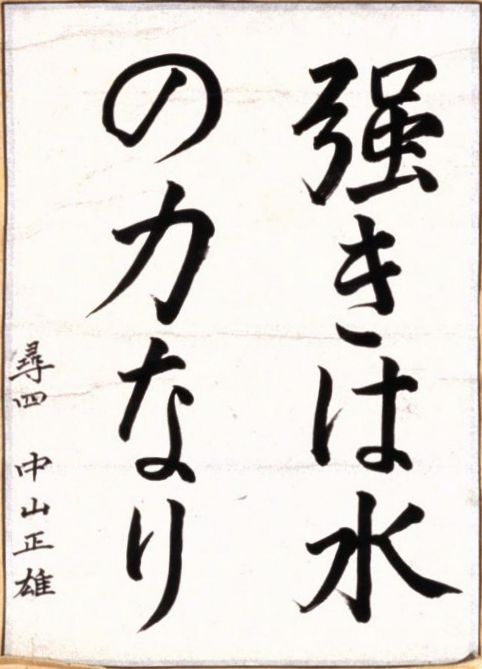 强きは水
の力なり
尋四 中山正雄